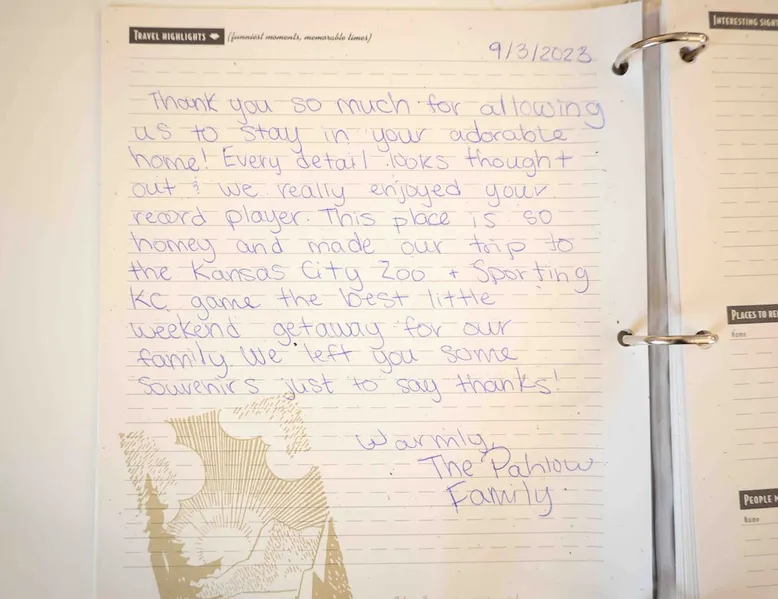 TRAVEL HIGHLIGHTS (funniest moments, memorable times)
9/3/2023
Thank you so much for allowing
us to stay in your adorable
home! Every detail looks thought
out & we really enjoyed your
record player. This place is so
homey and made our trip to
the Kansas City Zoo + Sporting
KC game the best little
weekend getaway for our
family. We left you some
souvenirs just to say thanks!
Warmly,
The Pahlow
Family
INTERESTING
PLACES TO
Name
PEOPLE
Name